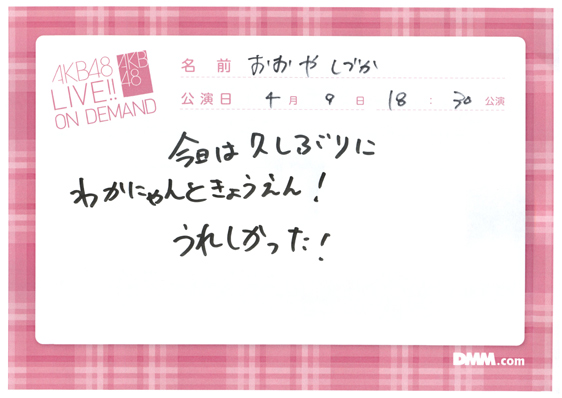 AKB48
LIVE!!
ON DEMAND
AKB
48
名前 おおや しづか
公演日 4月 9日 18:30 公演
今日は久しぶりに
わかにゃんときょうえん!
うれしかった!
DMM.com